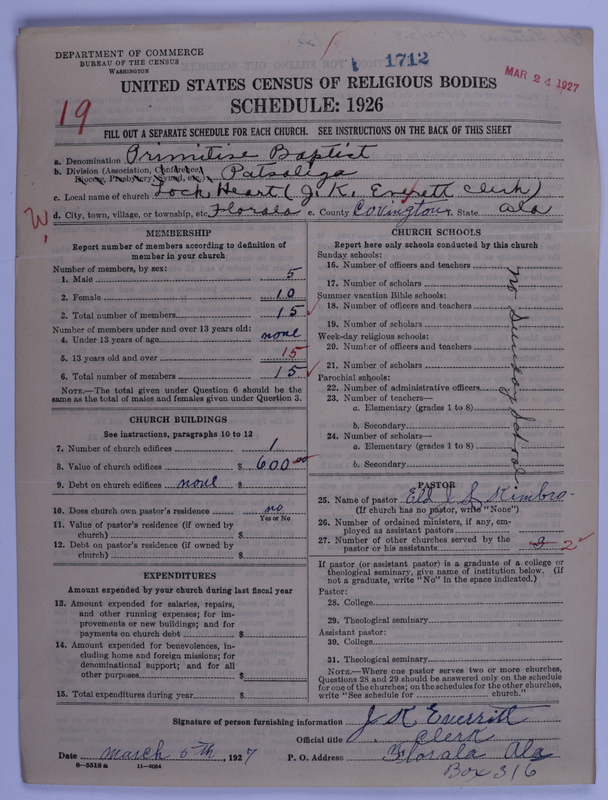 DEPARTMENT OF COMMERCE
BUREAU OF THE CENSUS
WASHINGTON
1712
MAR 24 1927
UNITED STATES CENSUS OF RELIGIOUS BODIES
SCHEDULE: 1926
19
FILL OUT A SEPARATE SCHEDULE FOR EACH CHURCH. SEE INSTRUCTIONS ON THE BACK OF THIS SHEET
a. Denomination Primitive Baptist
b. Division (Association, Conference, Diocese, Presbytery, Synod, etc.) Patsaliga
c. Local name of church Lock Heart (J. K. Everett clerk)
W,
d. City, town, village, or township, etc. Florala e. County Covington f. State Ala
MEMBERSHIP
Report number of members according to definition of member in your church
Number of members, by sex:
1. Male 5
2. Female 10
3. Total number of members 15
Number of members under and over 13 years old:
4. Under 13 years of age none
5. 13 years old and over 15
6. Total number of members 15
NOTE.—The total given under Question 6 should be the same as the total of males and females given under Question 3.
CHURCH BUILDINGS
See instructions, paragraphs 10 to 12
7. Number of church edifices 1
8. Value of church edifices $ 600.00
9. Debt on church edifices none $
10. Does church own pastor's residence no
Yes or No
11. Value of pastor's residence (if owned by church) $
12. Debt on pastor's residence (if owned by church) $
EXPENDITURES
Amount expended by your church during last fiscal year
13. Amount expended for salaries, repairs, and other running expenses; for improvements or new buildings; and for payments on church debt $
14. Amount expended for benevolences, including home and foreign missions; for denominational support; and for all other purposes $
15. Total expenditures during year $
CHURCH SCHOOLS
Report here only schools conducted by this church
Sunday schools:
16. Number of officers and teachers
17. Number of scholars
Summer vacation Bible schools:
18. Number of officers and teachers
19. Number of scholars
Week-day religious schools:
20. Number of officers and teachers
21. Number of scholars
Parochial schools:
22. Number of administrative officers
23. Number of teachers—
a. Elementary (grades 1 to 8)
b. Secondary
24. Number of scholars—
a. Elementary (grades 1 to 8)
b. Secondary
no Sunday School
PASTOR
25. Name of pastor Eld I S Kimbro
(If church has no pastor, write "None")
26. Number of ordained ministers, if any, employed as assistant pastors
27. Number of other churches served by the pastor or his assistants 3 2
If pastor (or assistant pastor) is a graduate of a college or theological seminary, give name of institution below. (If not a graduate, write "No" in the space indicated.)
Pastor:
28. College
29. Theological seminary
Assistant pastor:
30. College
31. Theological seminary
NOTE.—Where one pastor serves two or more churches, Questions 28 and 29 should be answered only on the schedule for one of the churches; on the schedules for the other churches, write "See schedule for church."
Signature of person furnishing information J K Everritt
Official title Clerk
Date March 5th, 1927 P. O. Address Florala Ala
Box 316
8-5518a 11-9084